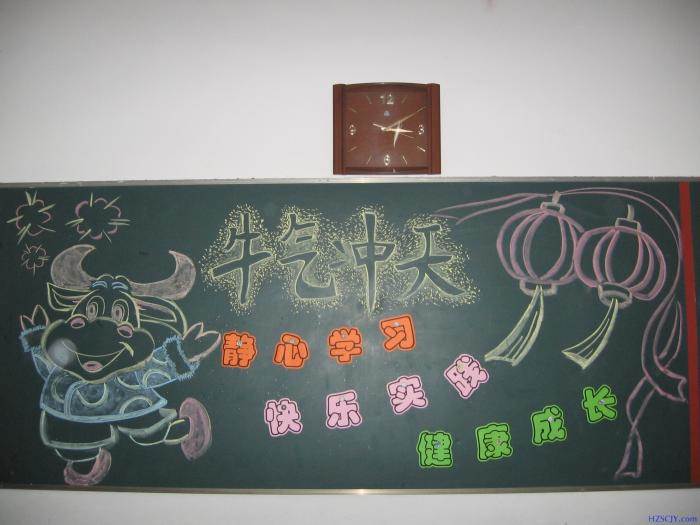 12
9
3
6
牛气冲天
静心学习
快乐实践
健康成长
HZSCJY.com